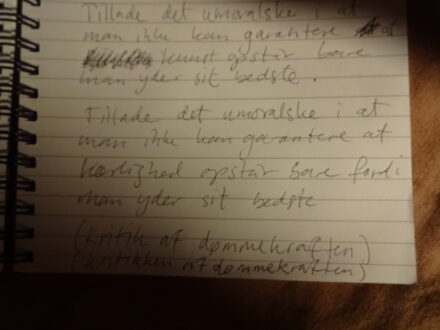 Tillade det umoralske i at
man ikke kan garantere at
kunst opstår bare
man yder sit bedste.
Tillade det umoralske i at
man ikke kan garantere at
Kærlighed opstår bare fordi
man yder sit bedste
(kritik af dømmekraften)
(kritikken af dømmekraften)